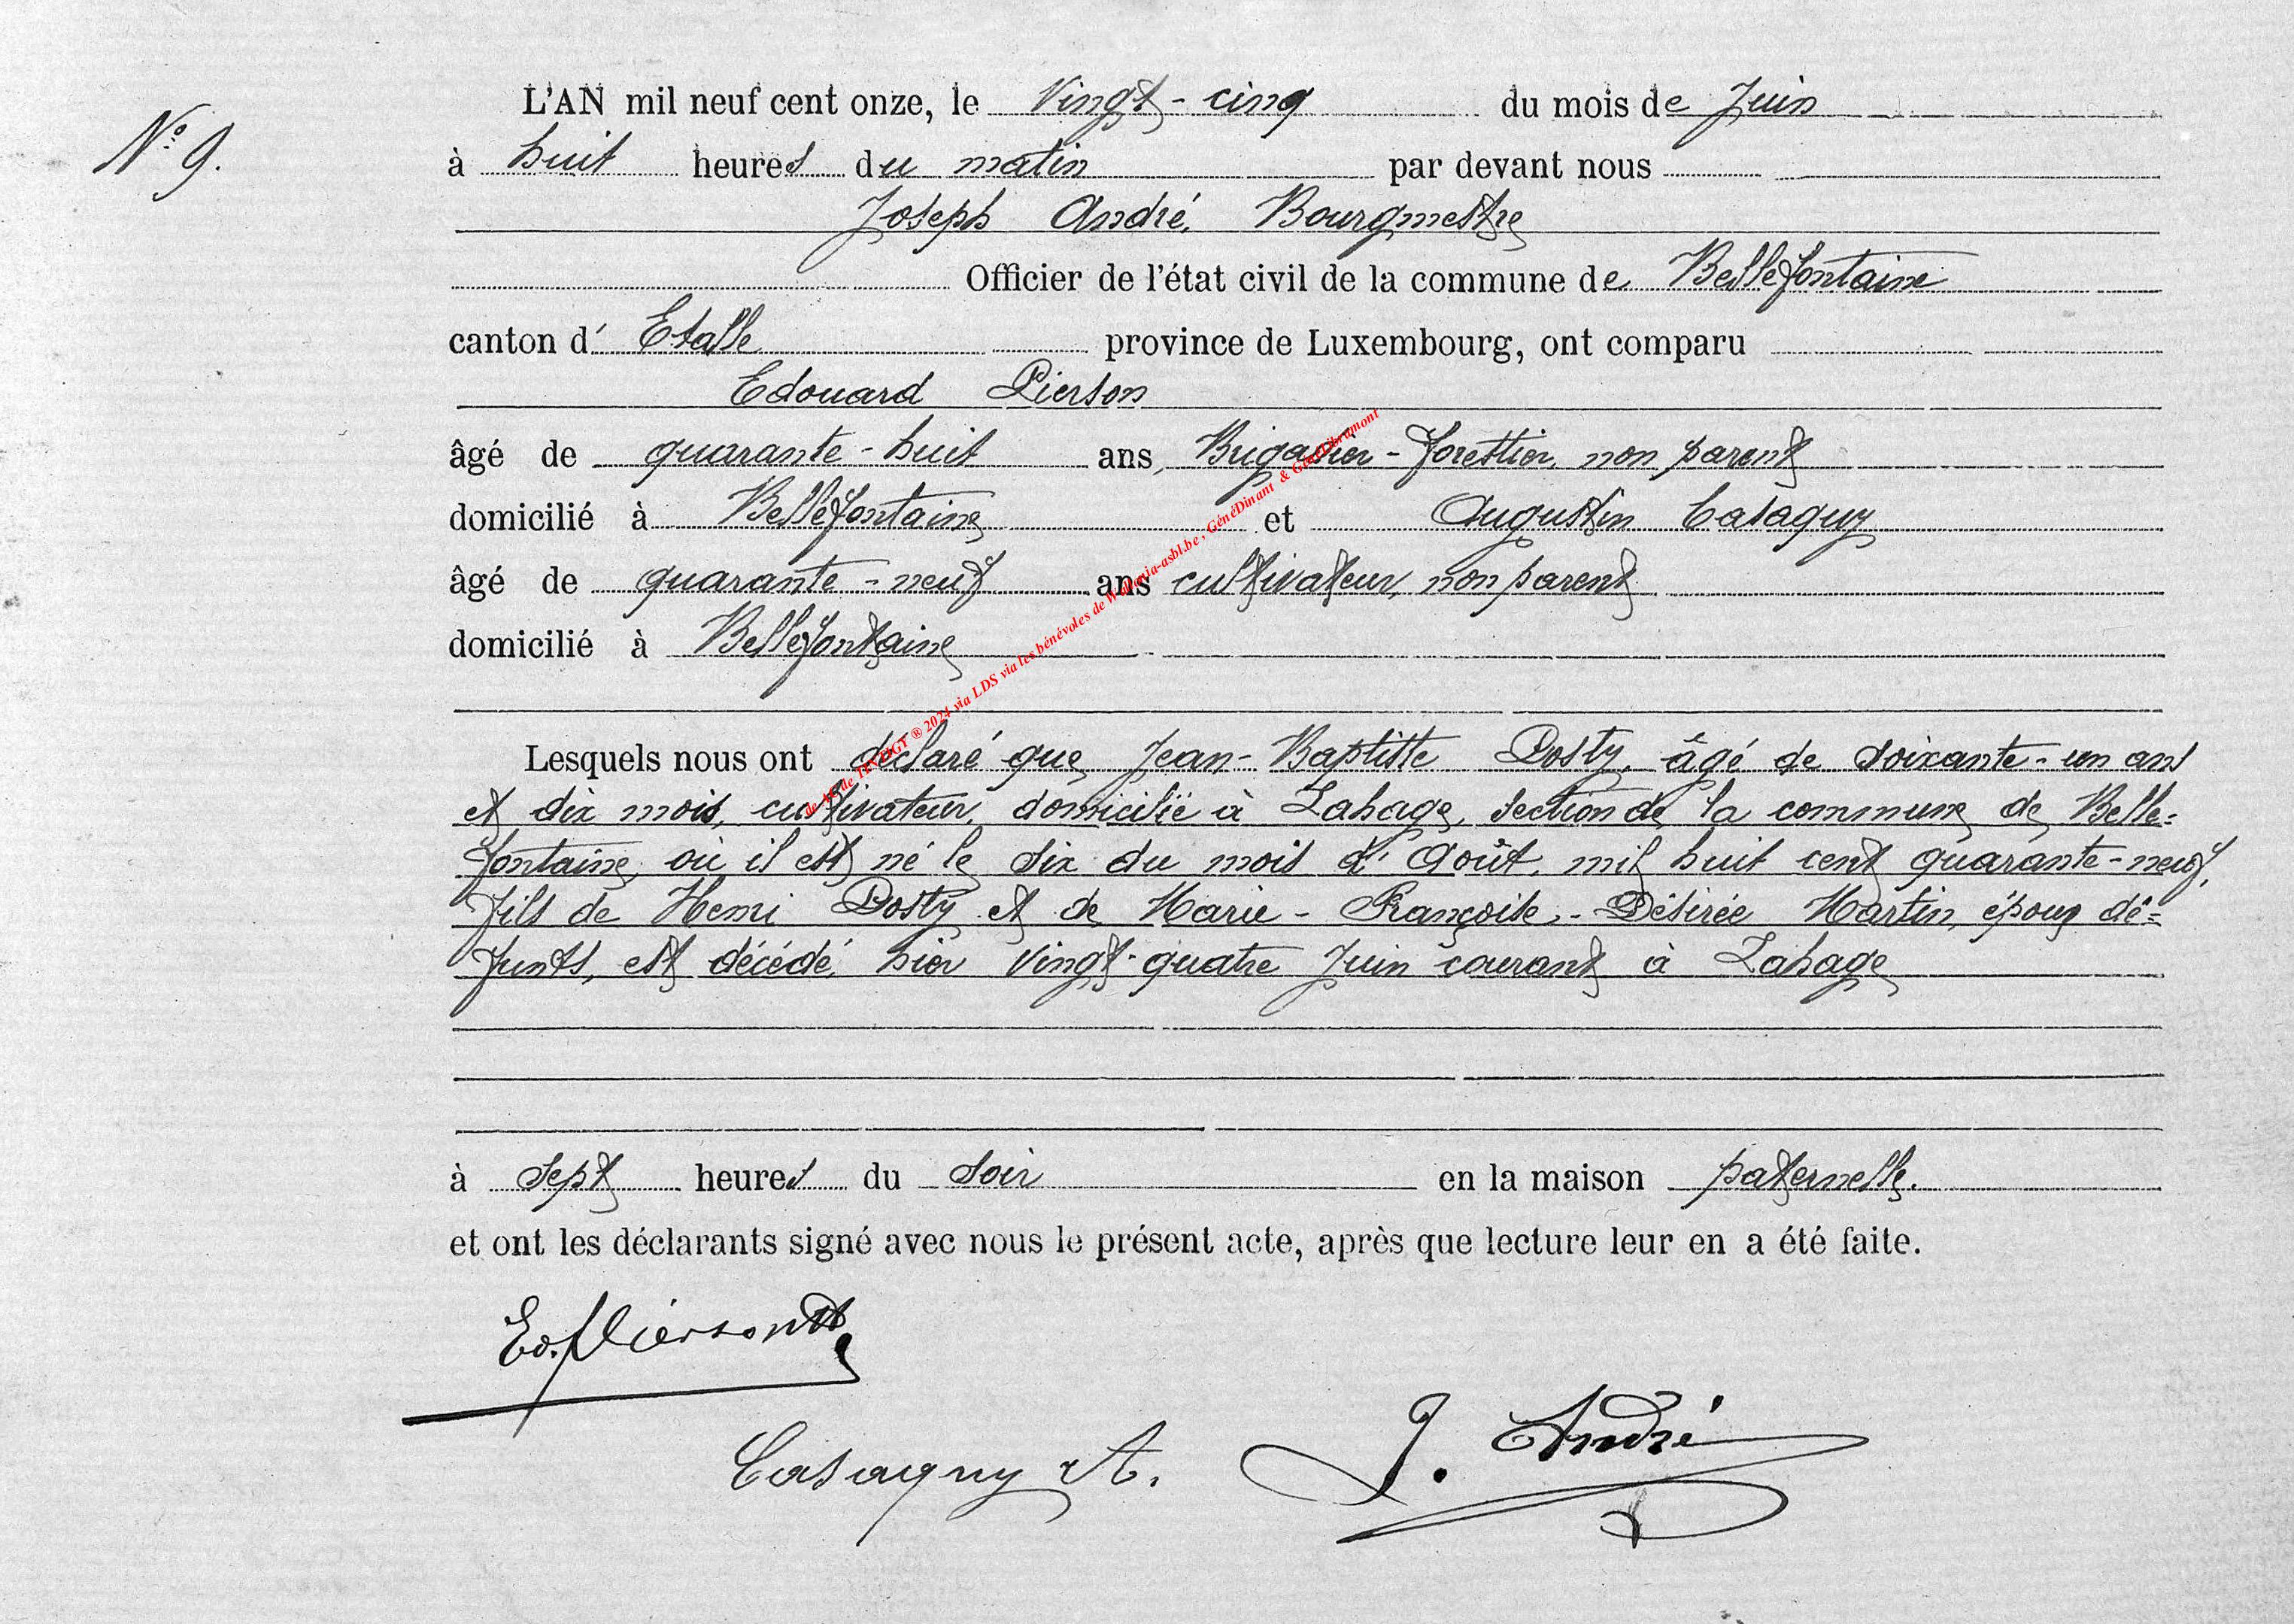 N° 9.
L'AN mil neuf cent onze, le Vingt-cinq du mois de Juin
à huit heures du matin par devant nous
Joseph André, Bourgmestre
Officier de l'état civil de la commune de Bellefontaine
canton d' Etalle province de Luxembourg, ont comparu
Edouard Pierson
âgé de quarante-huit ans, Brigadier-forestier, non parent
domicilié à Bellefontaine et Augustin Casaquy
âgé de quarante-neuf ans cultivateur, non parent
domicilié à Bellefontaine
Lesquels nous ont déclaré que Jean-Baptiste Posty, âgé de soixante-un ans
et dix mois, cultivateur, domicilié à Lahage, section de la commune de Belle=
fontaine, où il est né le dix du mois d'Août, mil huit cent quarante-neuf,
fils de Henri Posty et de Marie-Françoise-Désirée Martin, époux dé=
funts, est décédé, hier vingt-quatre Juin courant à Lahage
à sept heures du soir en la maison paternelle.
et ont les déclarants signé avec nous le présent acte, après que lecture leur en a été faite.
Ed. Pierson
Casaquy A. J. André
® 2024 via LDS via les bénévoles de Wallonia-asbl.be, GénéDinant &